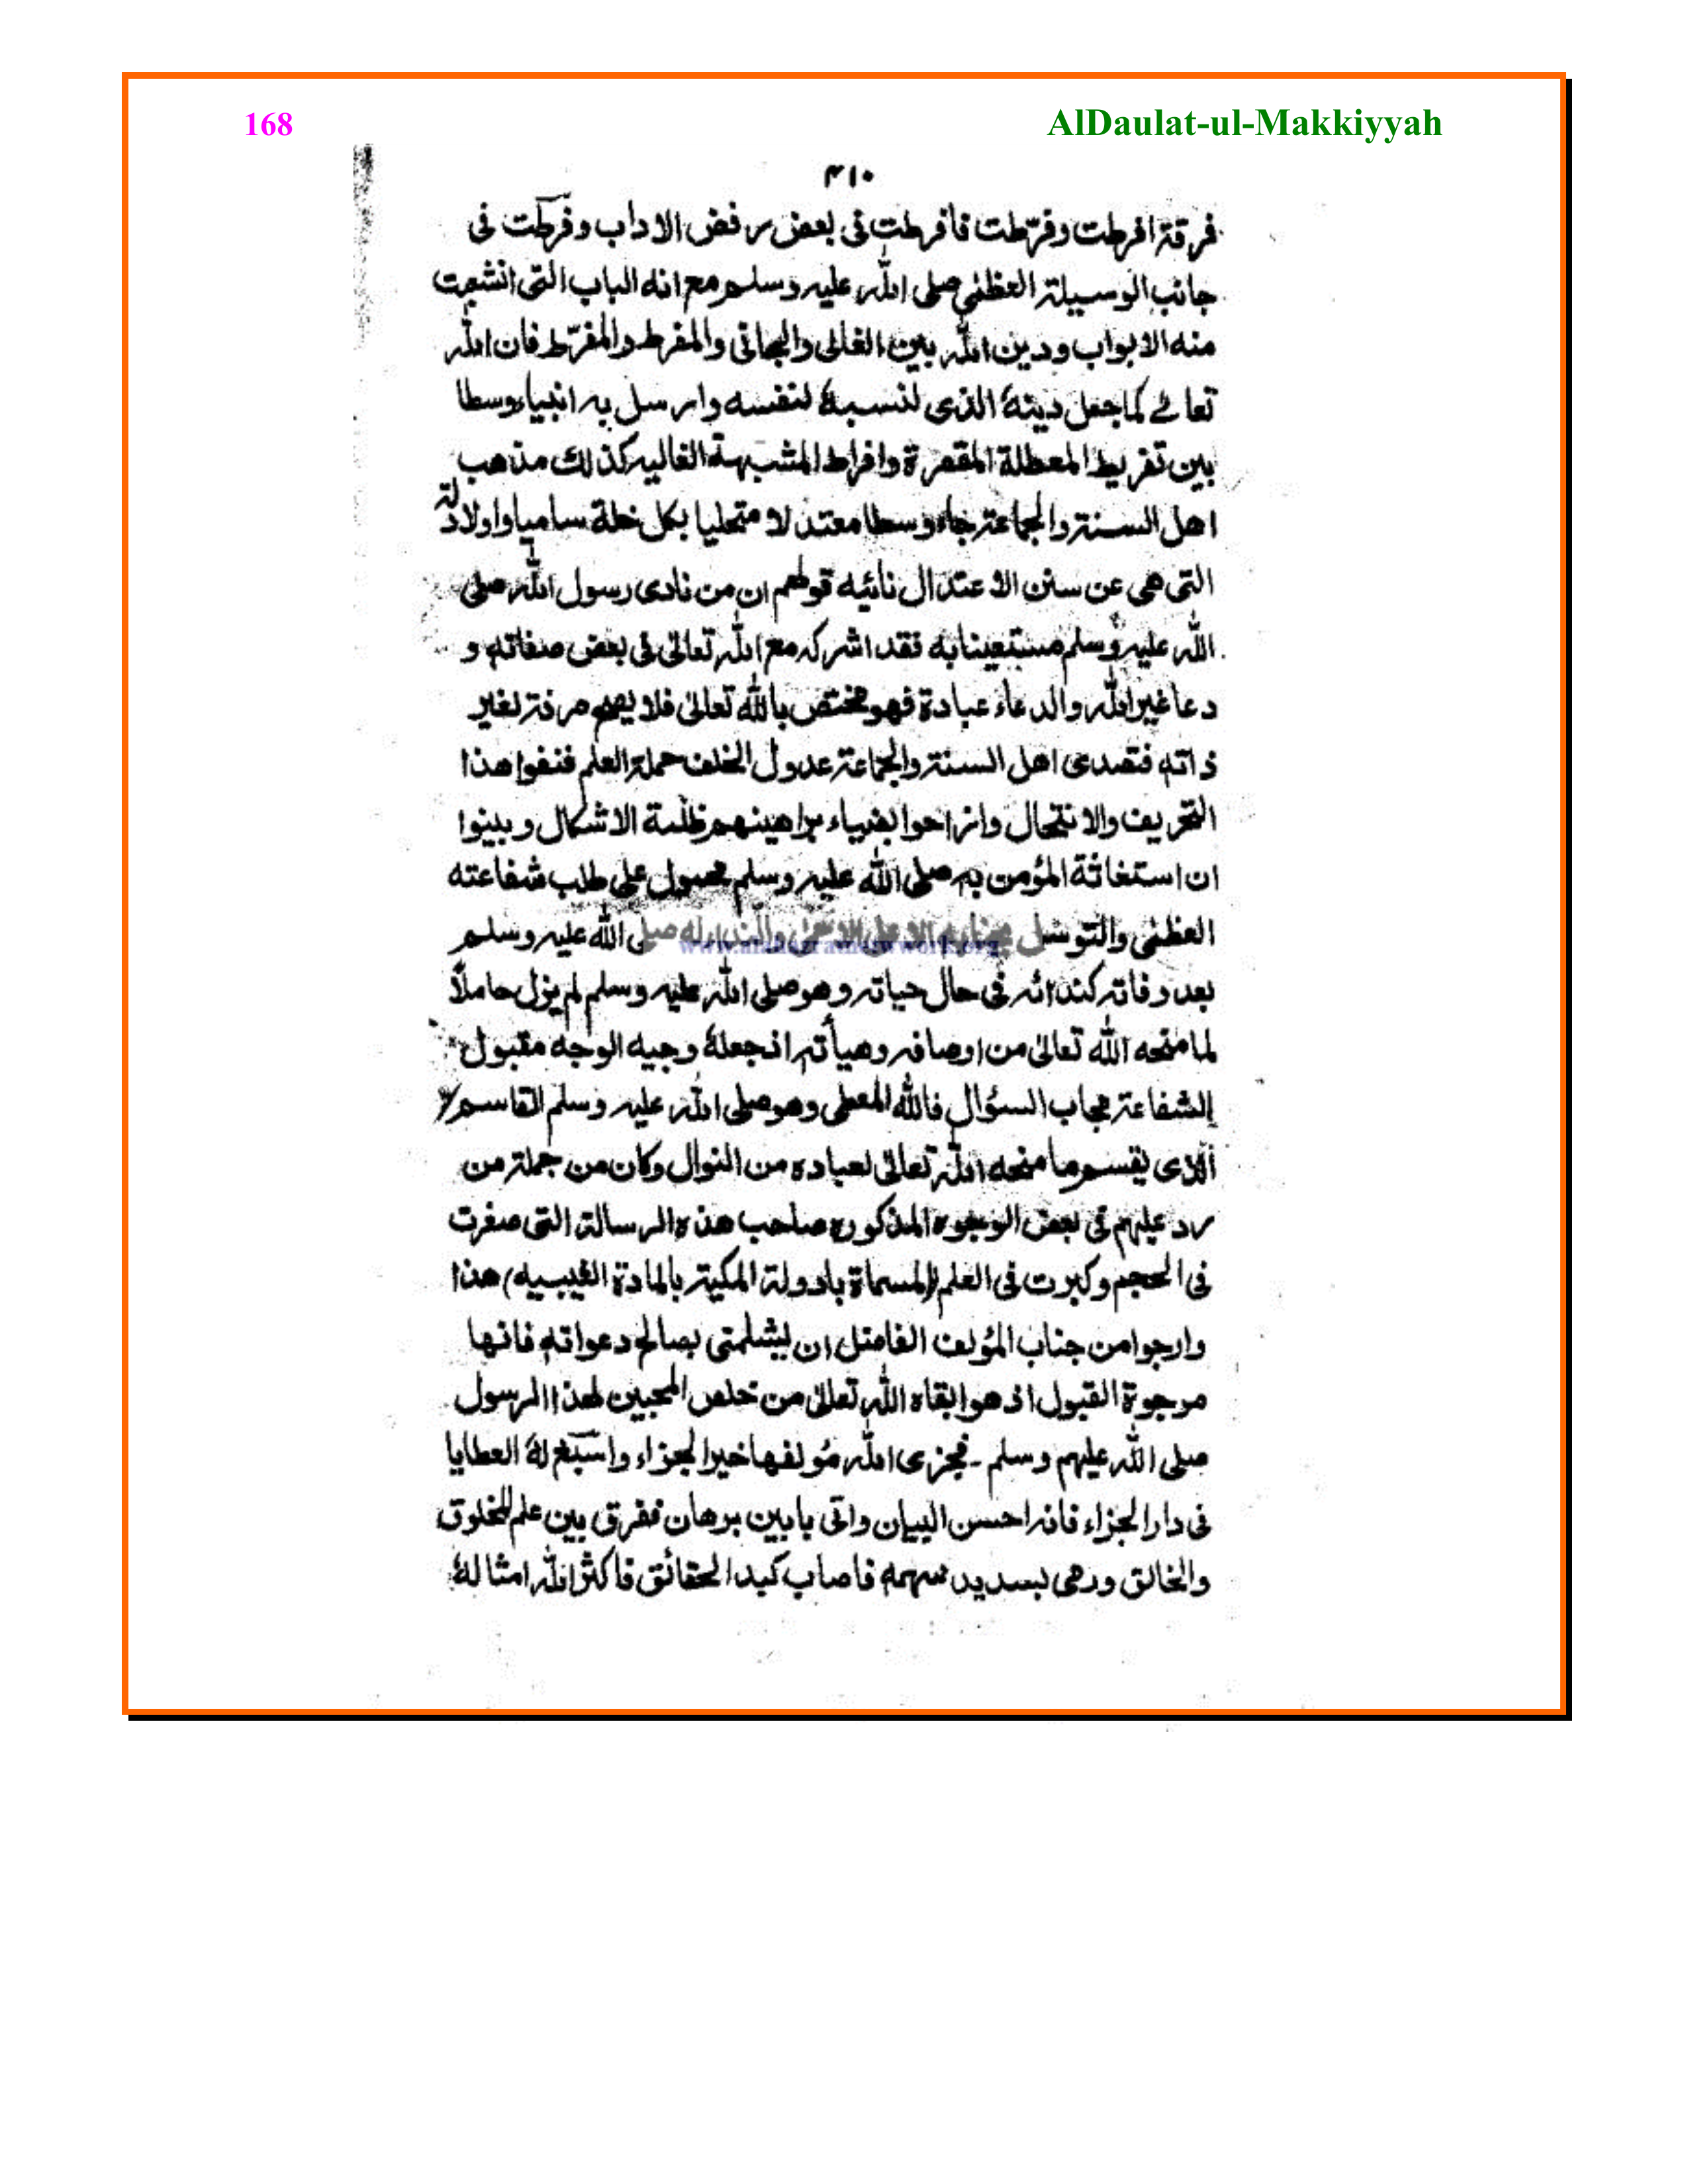 168
AlDaulat-ul-Makkiyyah
٣١٠
فرقة افرطت وفرّطت فافرطت فى بعض رفض الاداب وفرطت فى
جانب الوسيلة العظمى صلى الله عليه وسلم مع انه الباب التى انشعبت
منه الابواب ودين الله بين الغالى والجافى والمفرط والمفرّط فان الله
تعالے كما جعل دينهٗ الذى لنسبهٗ لنفسه وارسل به انبياء وسطا
بين تفريط المعطلة المقصرة وافراط المشبهة الغاليه كذلك مذهب
اهل السنة والجماعة جاء وسطا معتدلا متحليا بكل خلة ساميا واولادلة
التى هى عن سنن الاعتدال نائيه قولهم ان من نادى رسول الله صلى
الله عليه وسلم مستعينا به فقد اشركه مع الله تعالى فى بعض صفاته و
دعا غير الله والدعاء عبادة فهو مختص بالله تعالىٰ فلا يصح صرفة لغير
ذاته فتصدى اهل السنة والجماعة عدول الخلف حملة العلم فنفوا هذا
التحريف والانتحال وازاحوا بضياء براهينهم ظلمة الاشكال وبينوا
ان استغاثة المؤمن به صلى الله عليه وسلم محمول على طلب شفاعته
العظمٰى والتوسل بجنابه الاعلى والنداء له صلى الله عليه وسلم
بعد وفاته كندائه فى حال حياته وهو صلى الله عليه وسلم لم يزل حاملاً
لما منحه الله تعالىٰ من اوصافه وهيأته اذ جعلهٗ وجيه الوجه مقبول
الشفاعة مجاب السؤال فالله المعطى وهو صلى الله عليه وسلم القاسم
الذى يقسم ما منحه الله تعالىٰ لعباده من النوال وكان من جملة من
رد عليهم فى بعض الوجوه المذكوره صاحب هذه الرسالة التى صغرت
فى الحجم وكبرت فى العلم (المسماة بادولة المكية بالمادة الغيبيه) هذا
وارجوا من جناب المؤلف الفاضل ان يشلمتى بصالح دعواته فانها
مرجوة القبول اذ هو ابقاه الله تعالىٰ من خلص المحبين لهذا الرسول
صلى الله عليهم وسلم ۔ فجزى الله مُولفها خير الجزاء واسبغ لهٗ العطايا
فى دار الجزاء فانه احسن البيان واتى بابين برهان ففرق بين علم المخلوق
والخالق ورمى بسديد سهمه فاصاب كبد الحقائق فاكثر الله امثالهٗ
www.alahazratnetwork.org